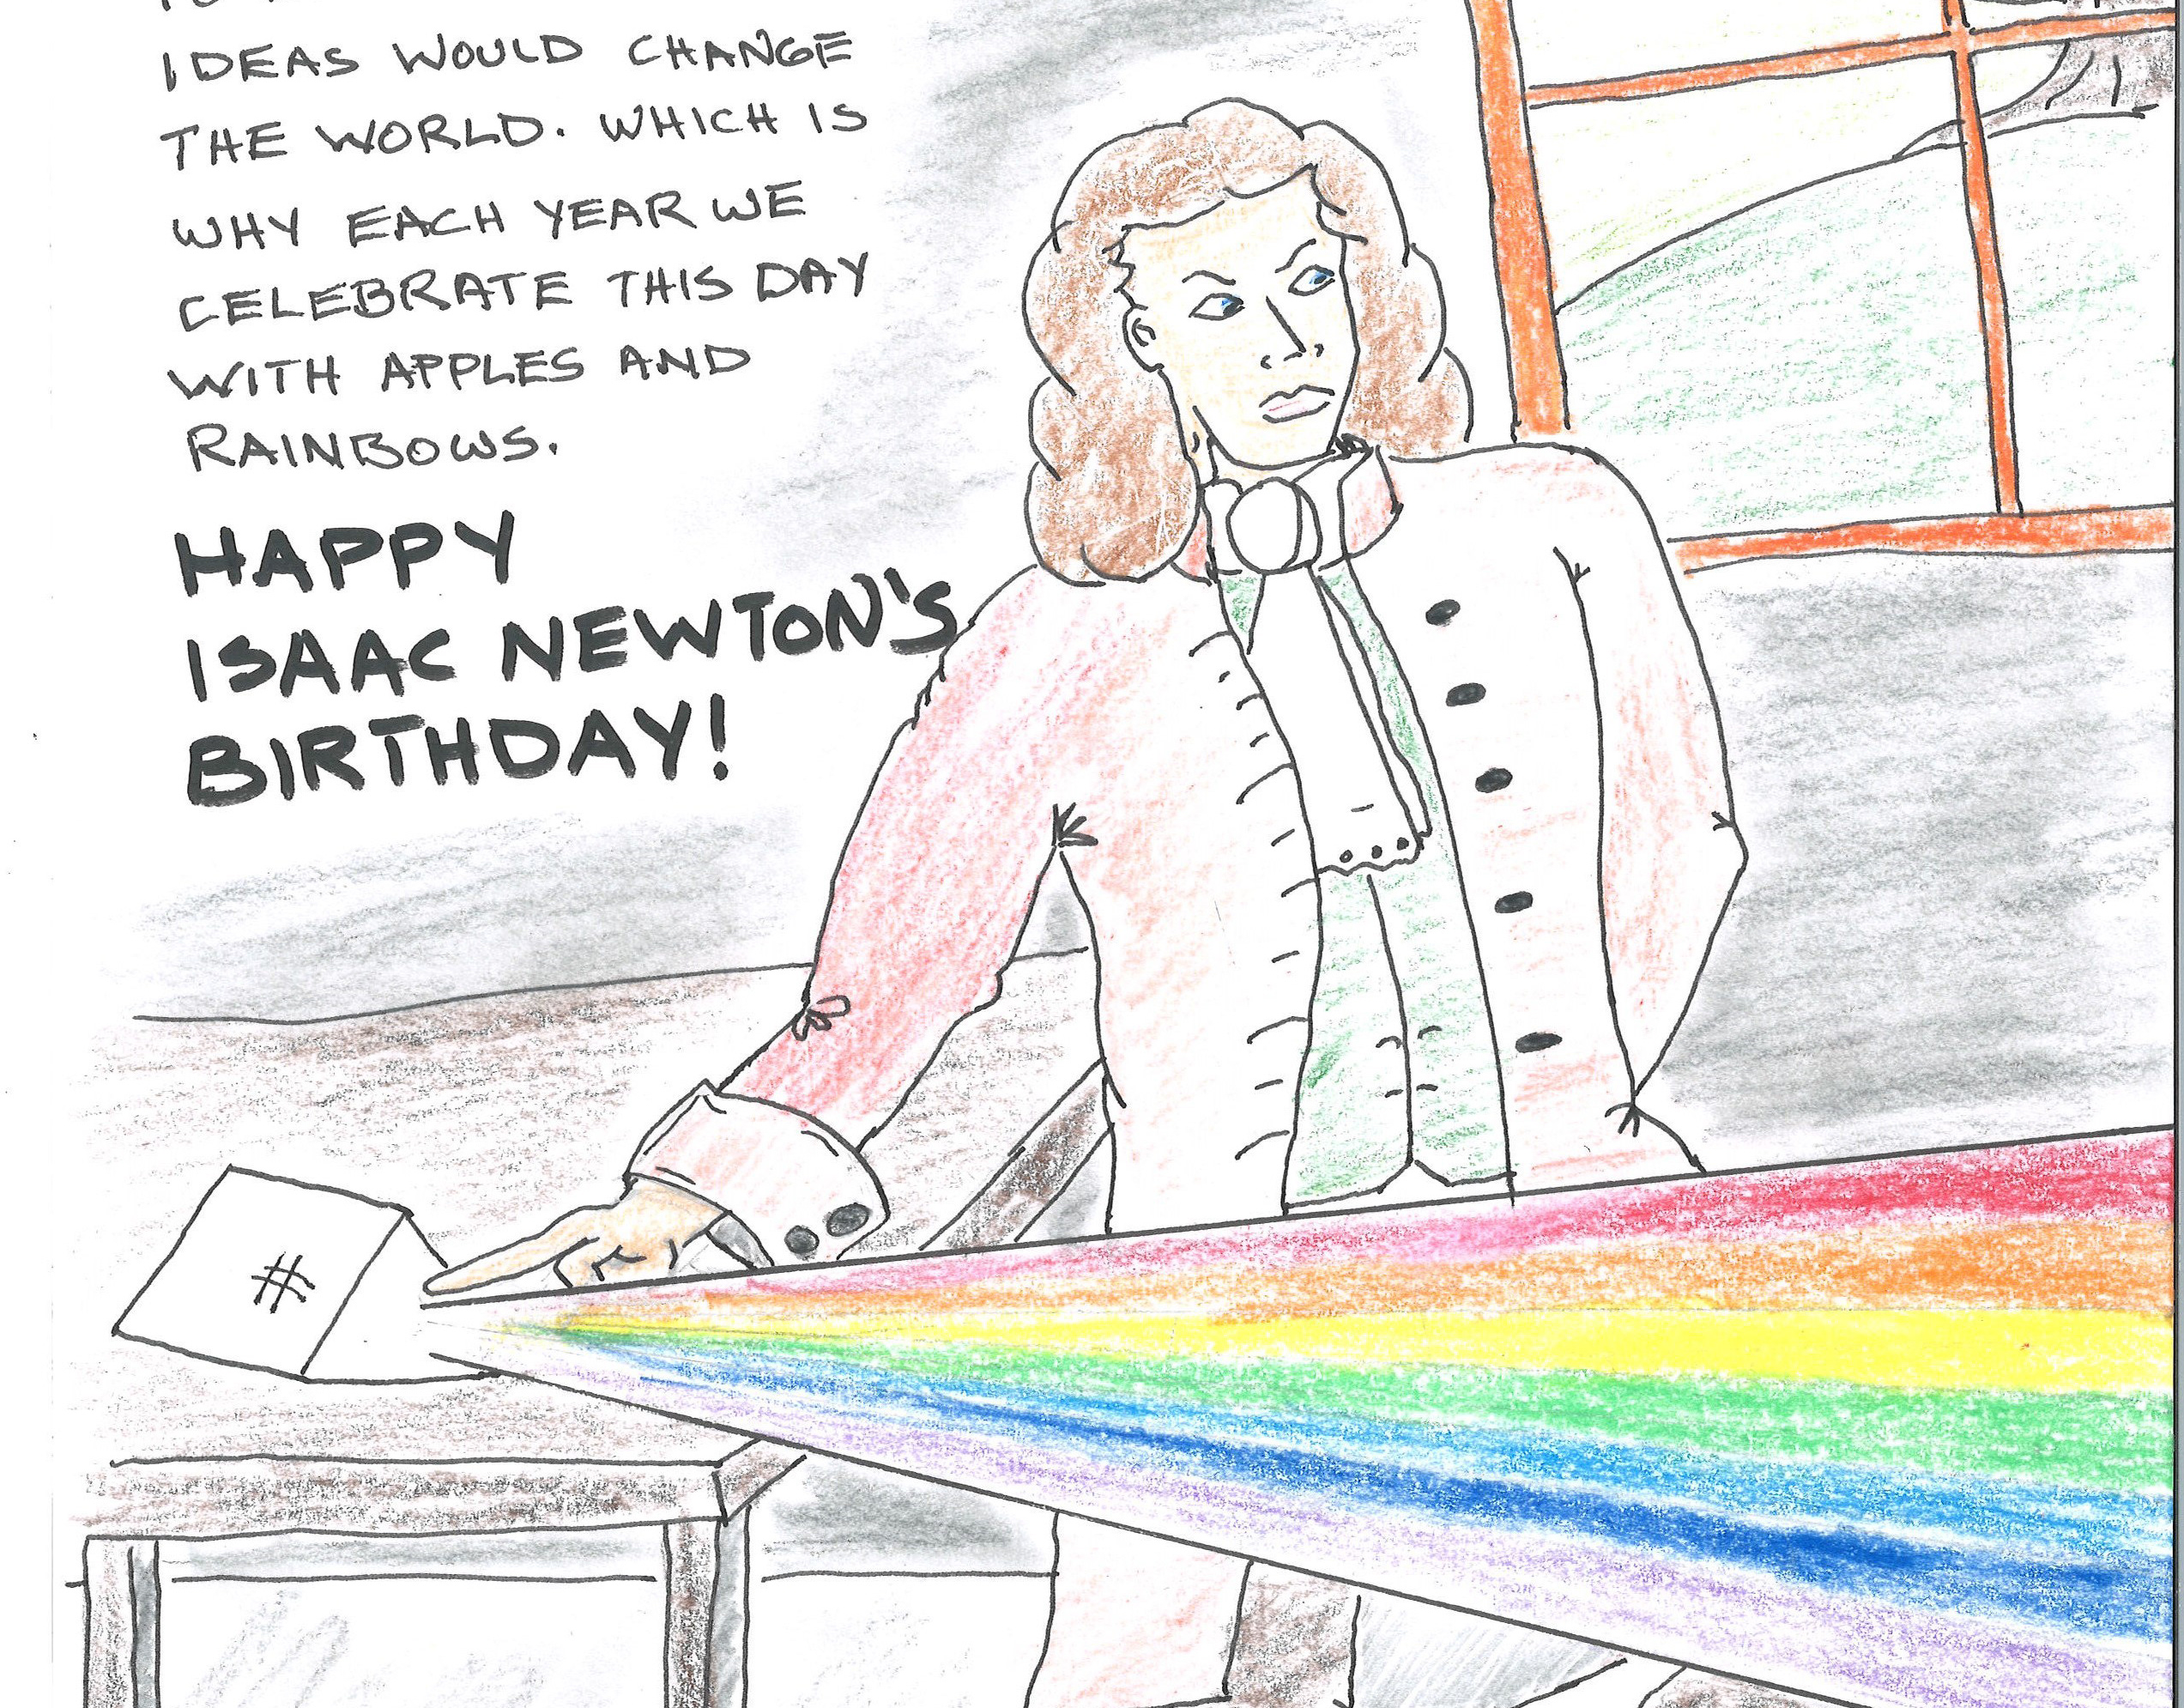 IDEAS WOULD CHANGE
THE WORLD. WHICH IS
WHY EACH YEAR WE
CELEBRATE THIS DAY
WITH APPLES AND
RAINBOWS.
HAPPY
ISAAC NEWTON'S
BIRTHDAY!